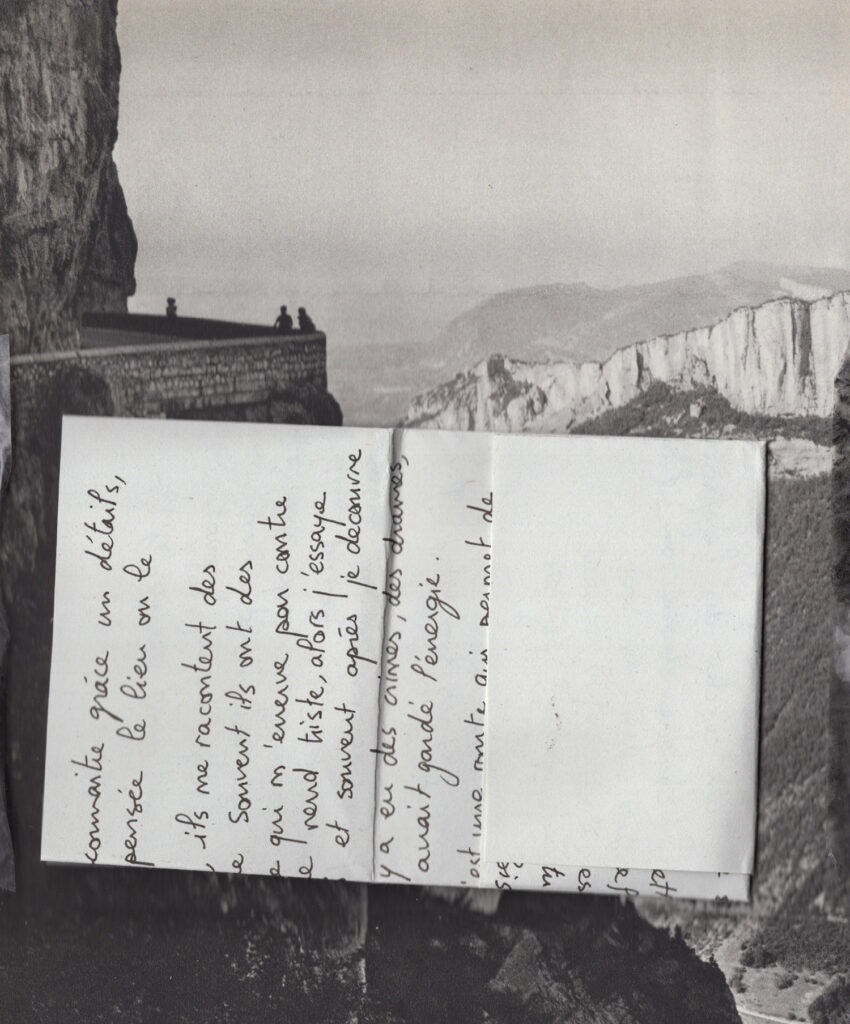 connaitre grâce un détails,
pensée le lieu on le
, ils me racontent des
e Souvent ils ont des
e qui m'enerve par contre
e rend triste, alors j'essaye
et souvent après je découvre
y a eu des crimes, des drames,
avait gardé l'énergie.
'est une route qui permet de
tu
es